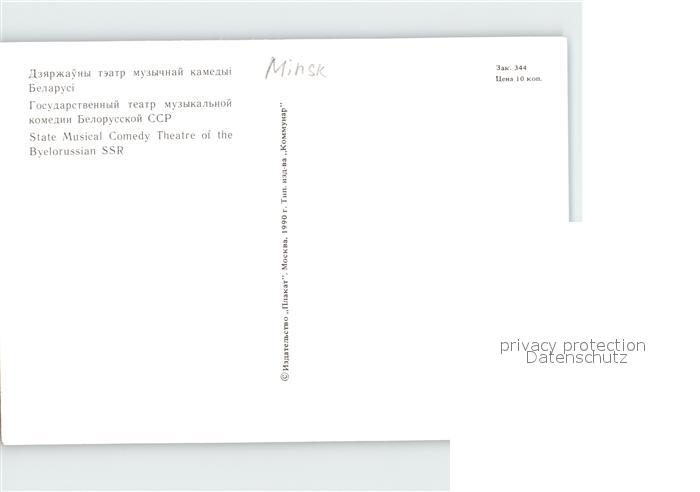 Дзяржаўны тэатр музычнай камедыі
Беларусі
Государственный театр музыкальной
комедии Белорусской ССР
State Musical Comedy Theatre of the
Byelorussian SSR
Minsk
Зак. 344
Цена 10 коп.
© Издательство „Плакат". Москва. 1990 г. Тип. изд-ва „Коммунар"
privacy protection
Datenschutz